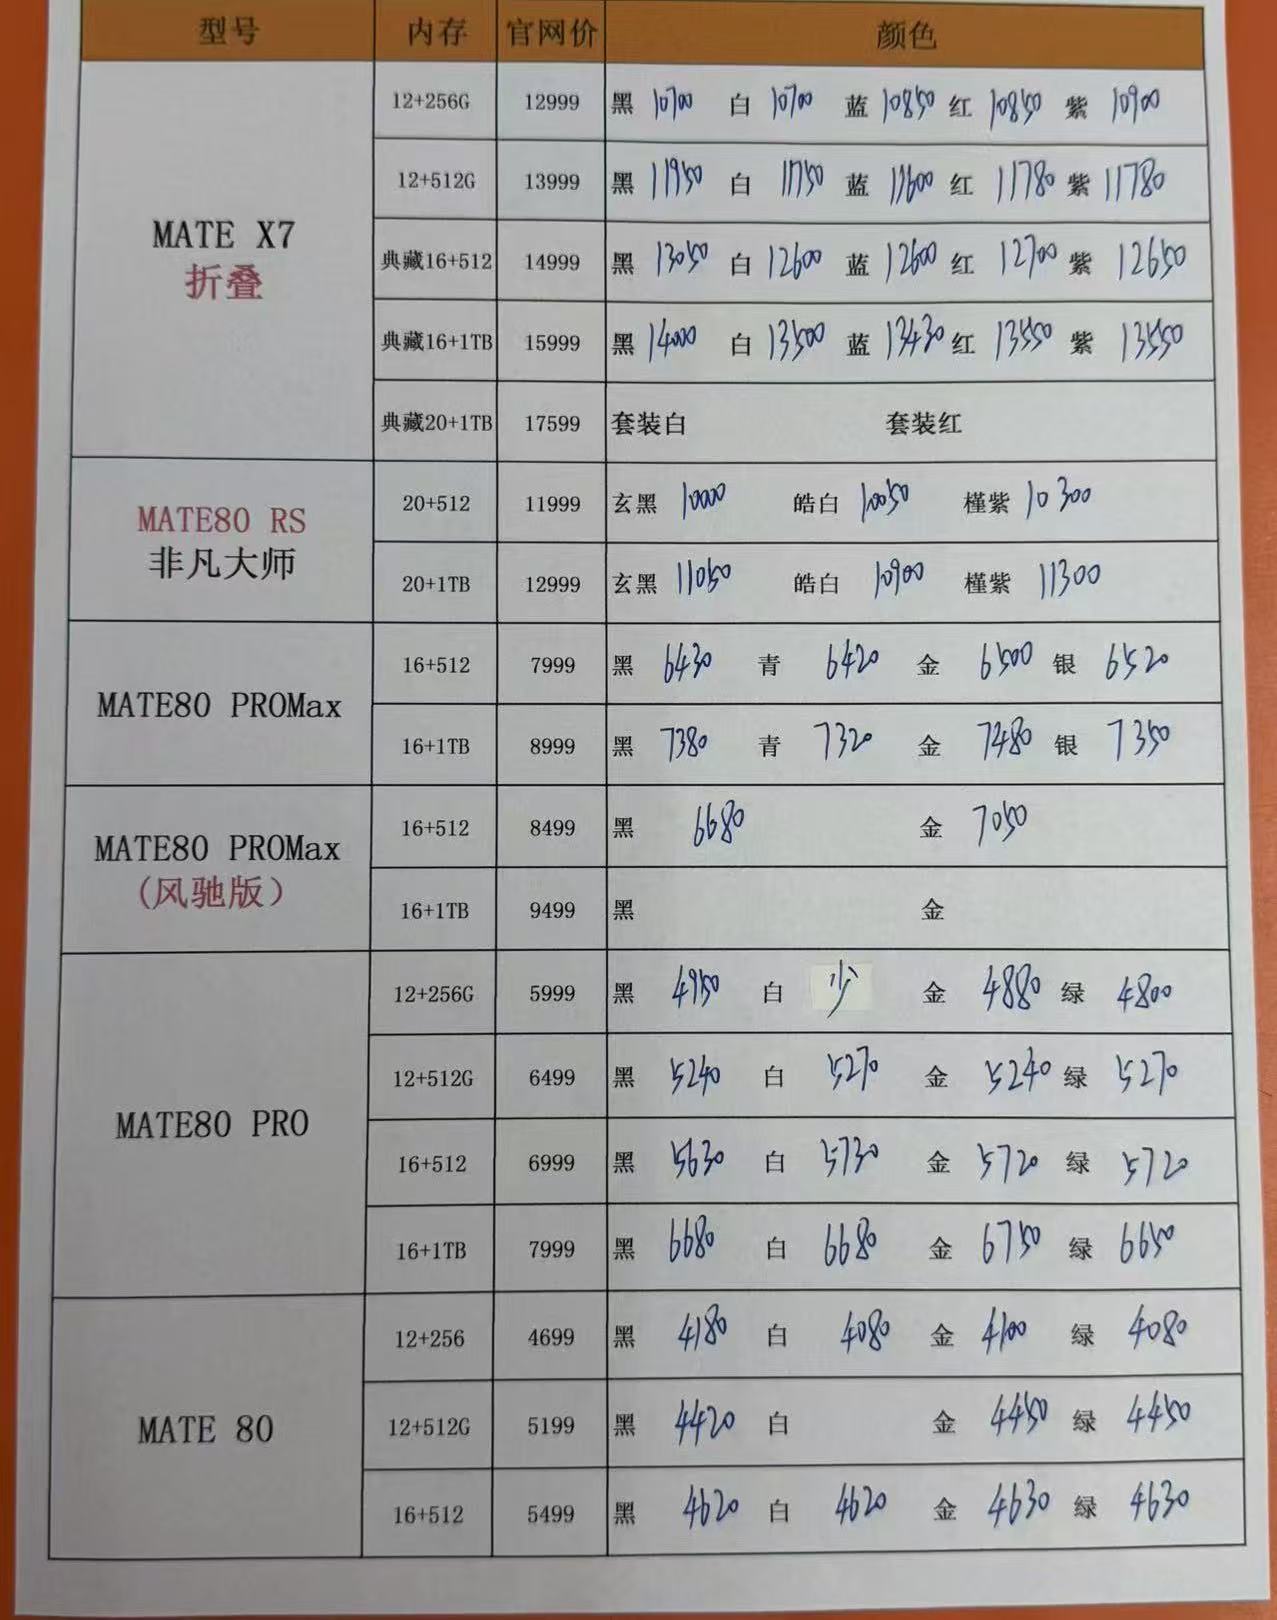 型号 内存 官网价 颜色
MATE X7
折叠
12+256G 12999 黑 10700 白 10700 蓝 10850 红 10850 紫 10900
12+512G 13999 黑 11950 白 11750 蓝 11600 红 11780 紫 11780
典藏16+512 14999 黑 13050 白 12600 蓝 12600 红 12700 紫 12650
典藏16+1TB 15999 黑 14000 白 13500 蓝 13430 红 13550 紫 13550
典藏20+1TB 17599 套装白 套装红
MATE80 RS
非凡大师
20+512 11999 玄黑 10000 皓白 10050 槿紫 10300
20+1TB 12999 玄黑 11050 皓白 10900 槿紫 11300
MATE80 PROMax
16+512 7999 黑 6430 青 6420 金 6500 银 6520
16+1TB 8999 黑 7380 青 7320 金 7480 银 7350
MATE80 PROMax
(风驰版)
16+512 8499 黑 6680 金 7050
16+1TB 9499 黑 金
MATE80 PRO
12+256G 5999 黑 4950 白 少 金 4880 绿 4800
12+512G 6499 黑 5240 白 5270 金 5240 绿 5270
16+512 6999 黑 5630 白 5730 金 5720 绿 5720
16+1TB 7999 黑 6680 白 6680 金 6750 绿 6650
MATE 80
12+256 4699 黑 4180 白 4080 金 4100 绿 4080
12+512G 5199 黑 4420 白 金 4450 绿 4450
16+512 5499 黑 4620 白 4620 金 4630 绿 4630